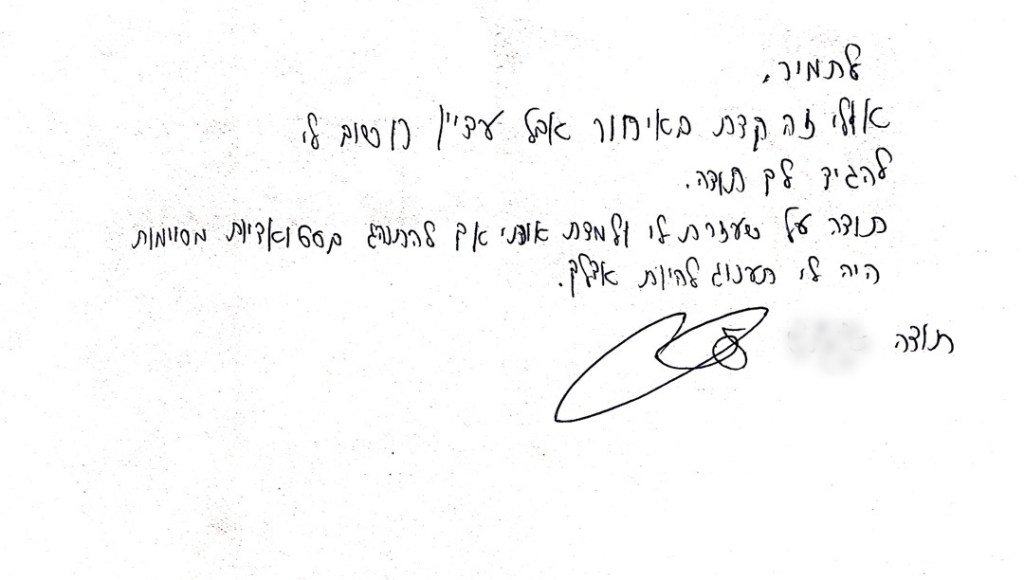 לתמיר,
אולי זה קצת באיחור אבל עדיין חשוב לי
להגיד לך תודה.
תודה על שעזרת לי ולמדת אותי איך להתנהג בסטואציות מסויימות
היה לי תענוג להיות אצלך.
תודה